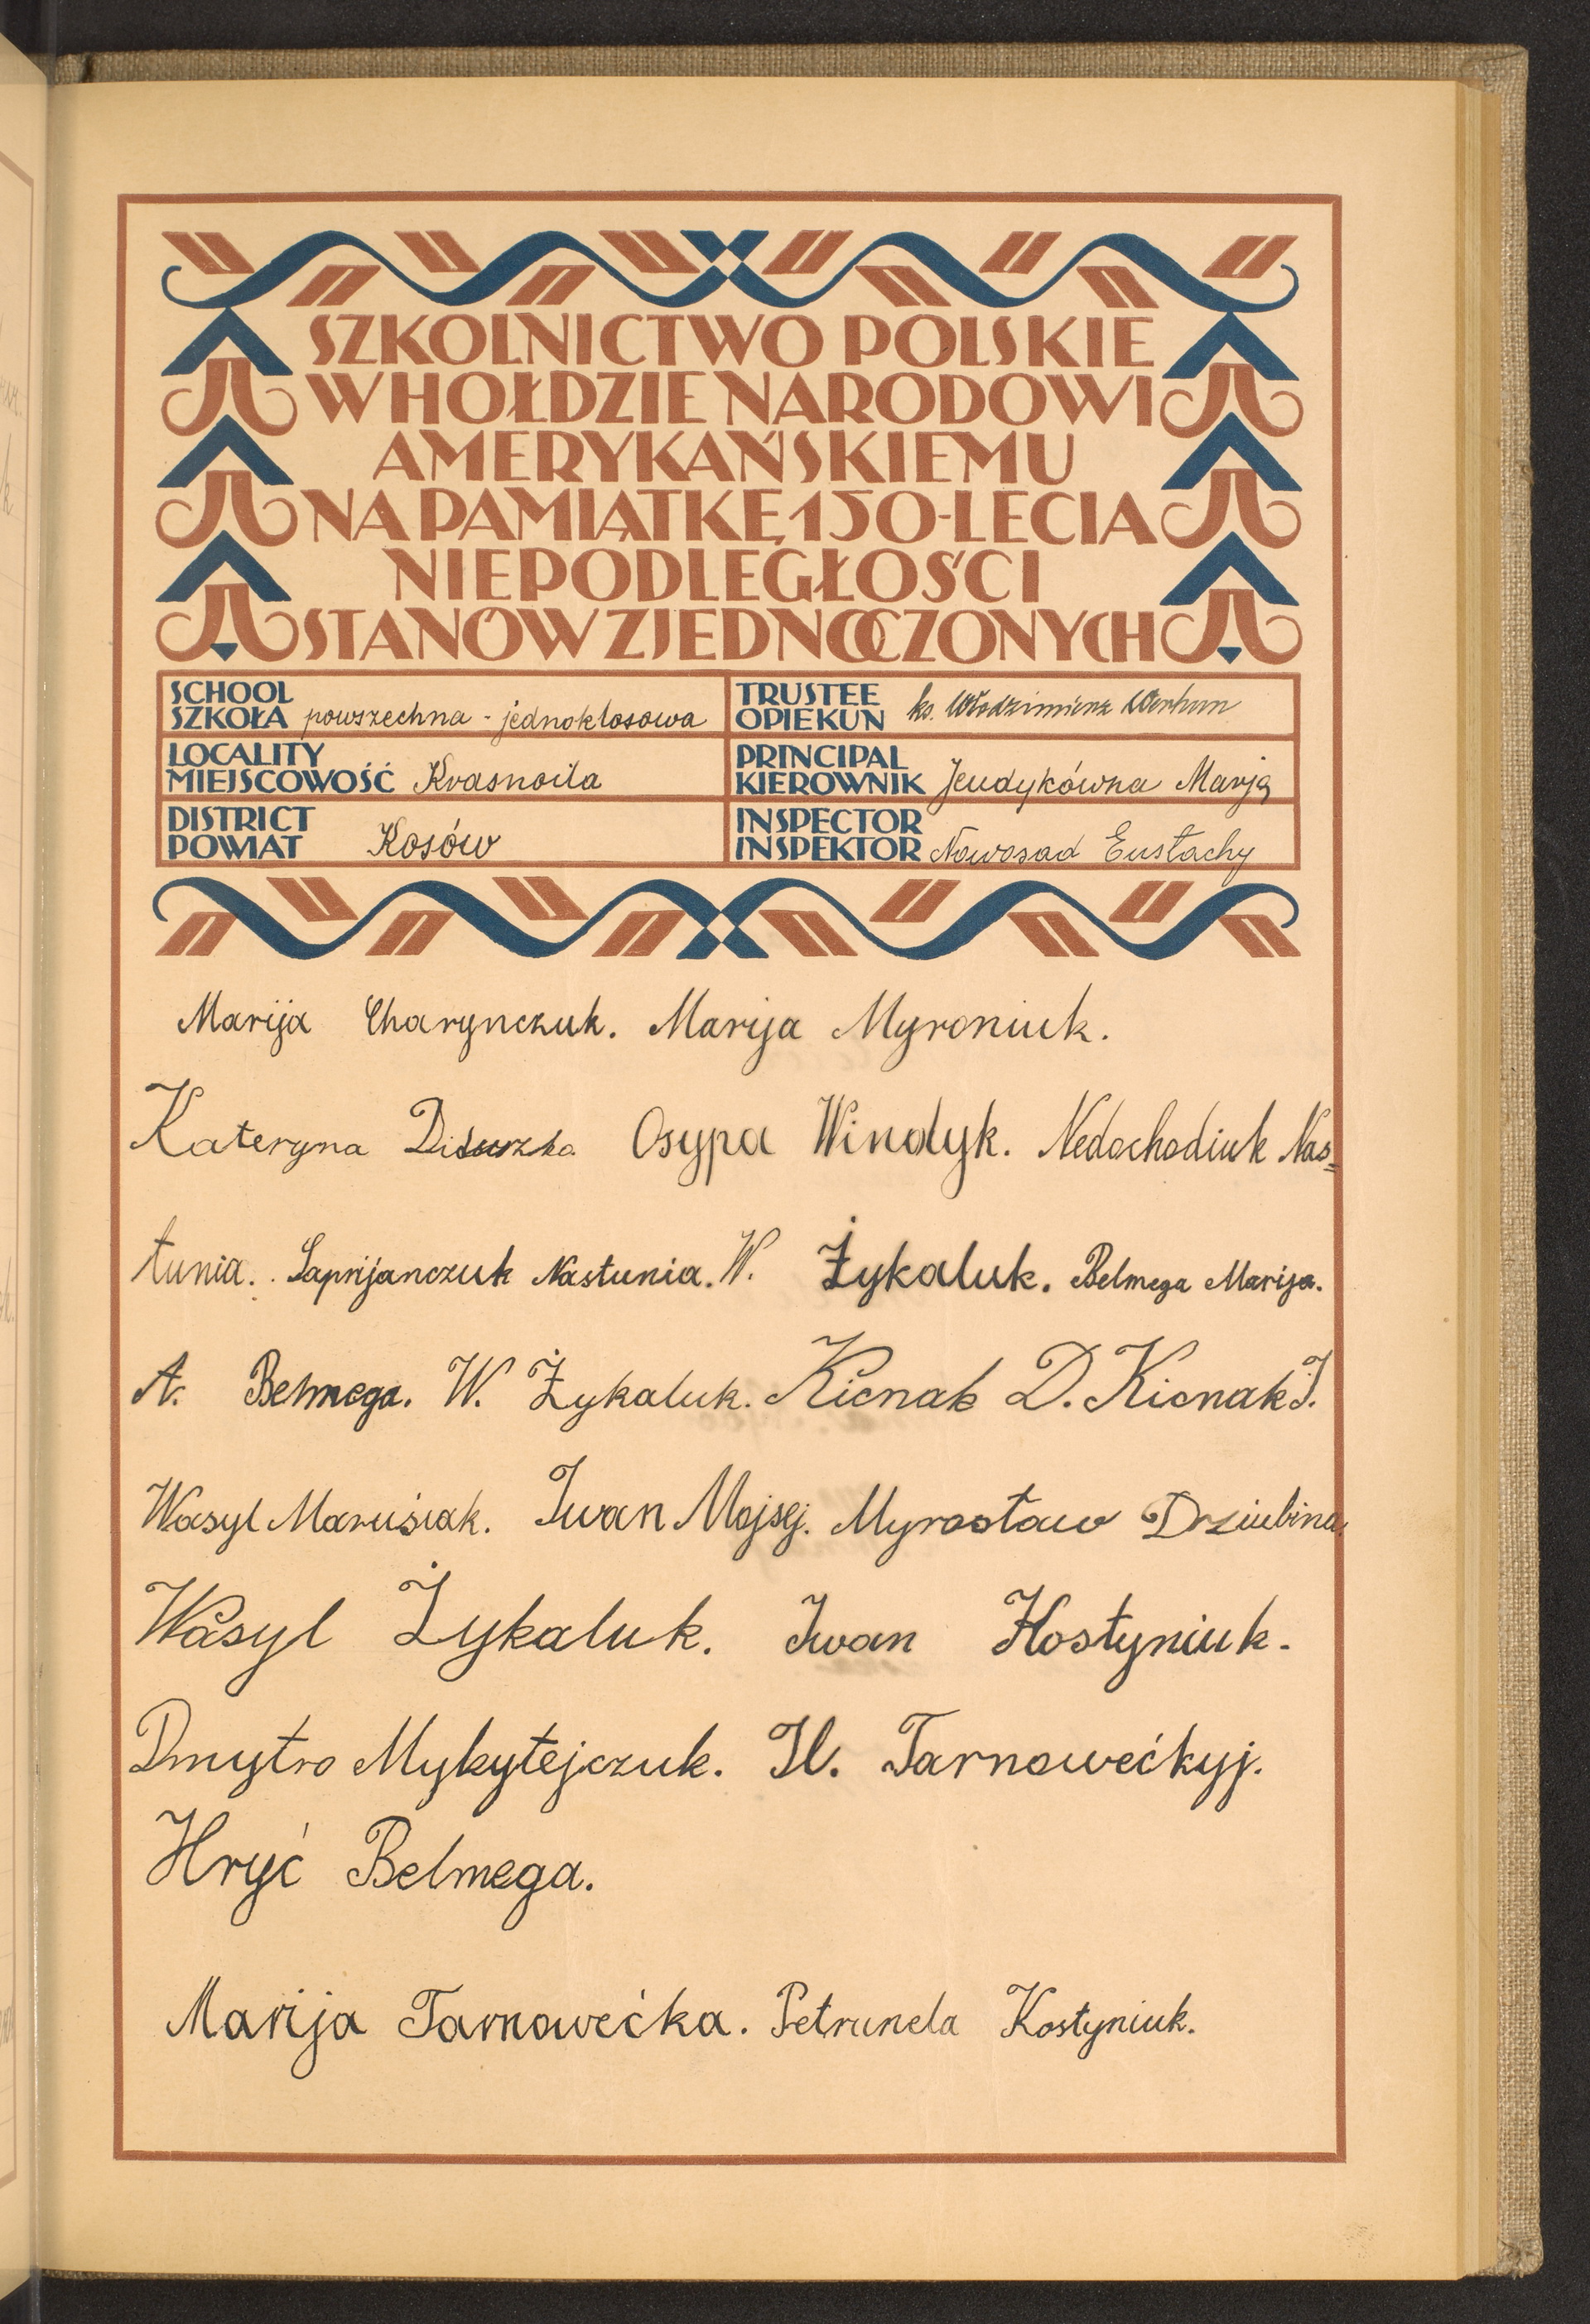 SZKOLNICTWO POLSKIE
W HOŁDZIE NARODOWI
AMERYKAŃSKIEMU
NA PAMIĄTKĘ 150-LECIA
NIEPODLEGŁOŚCI
STANÓW ZJEDNOCZONYCH
SCHOOL
SZKOŁA powszechna - jednoklasowa
TRUSTEE
OPIEKUN ks. Włodzimierz
LOCALITY
MIEJSCOWOŚĆ Krasnoila
PRINCIPAL
KIEROWNIK Jeudykówna Marja
DISTRICT
POWIAT Kosów
INSPECTOR
INSPEKTOR Nowosad Eustachy
Marija Charynczuk. Marija Myroniuk.
Kateryna Osypa Windyk. Nedochodiuk Nas=
tunia. Saprijanczuk Nastunia. W. Żykaluk. Belmega Marija.
A. Belmega. W. Żykaluk. Kicnak D. Kicnak J.
Wasyl Marusiak. Iwan Mojsej. Myrosław Dziubina.
Wasyl Żykaluk. Iwan Kostyniuk.
Dmytro Mykytejczuk. Il. Tarnowećkyj.
Hryć Belmega.
Marija Tarnowećka. Petrunela Kostyniuk.